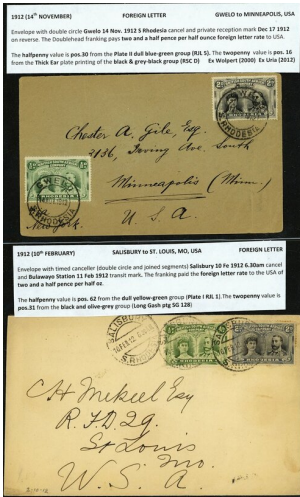 1912 (14th NOVEMBER) FOREIGN LETTER GWELO to MINNEAPOLIS, USA
Envelope with double circle Gwelo 14 Nov. 1912 S Rhodesia cancel and private reception mark Dec 17 1912
on reverse. The Doublehead franking pays two and a half penny per half ounce foreign letter rate to USA.
The halfpenny value is pos.30 from the Plate II dull blue-green group (RJL 5). The twopenny value is pos. 16
from the Thick Ear plate printing of the black & grey-black group (RSC D) Ex Wolpert (2000) Ex Uria (2012)
Chester A. Gile, Esq.
2136, Irving Ave. South
Minneapolis (Minn.)
U. S. A.
New York.
GWELO
S. RHODESIA
RHODESIA
RHODESIA
1912 (10th FEBRUARY) SALISBURY to ST. LOUIS, MO, USA FOREIGN LETTER
Envelope with timed canceller (double circle and joined segments) Salisbury 10 Fe 1912 6.30am cancel
and Bulawayo Station 11 Feb 1912 transit mark. The franking paid the foreign letter rate to the USA of
two and a half penny per half oz.
The halfpenny value is pos. 62 from the dull yellow-green group (Plate I RJL 1). The twopenny value is
pos.31 from the black and olive-grey group (Long Gash ptg SG 128)
SALISBURY
S. RHODESIA
RHODESIA
RHODESIA
C H Mekeel Esq
R. F. D. 29.
St Louis
Mo.
U. S. A